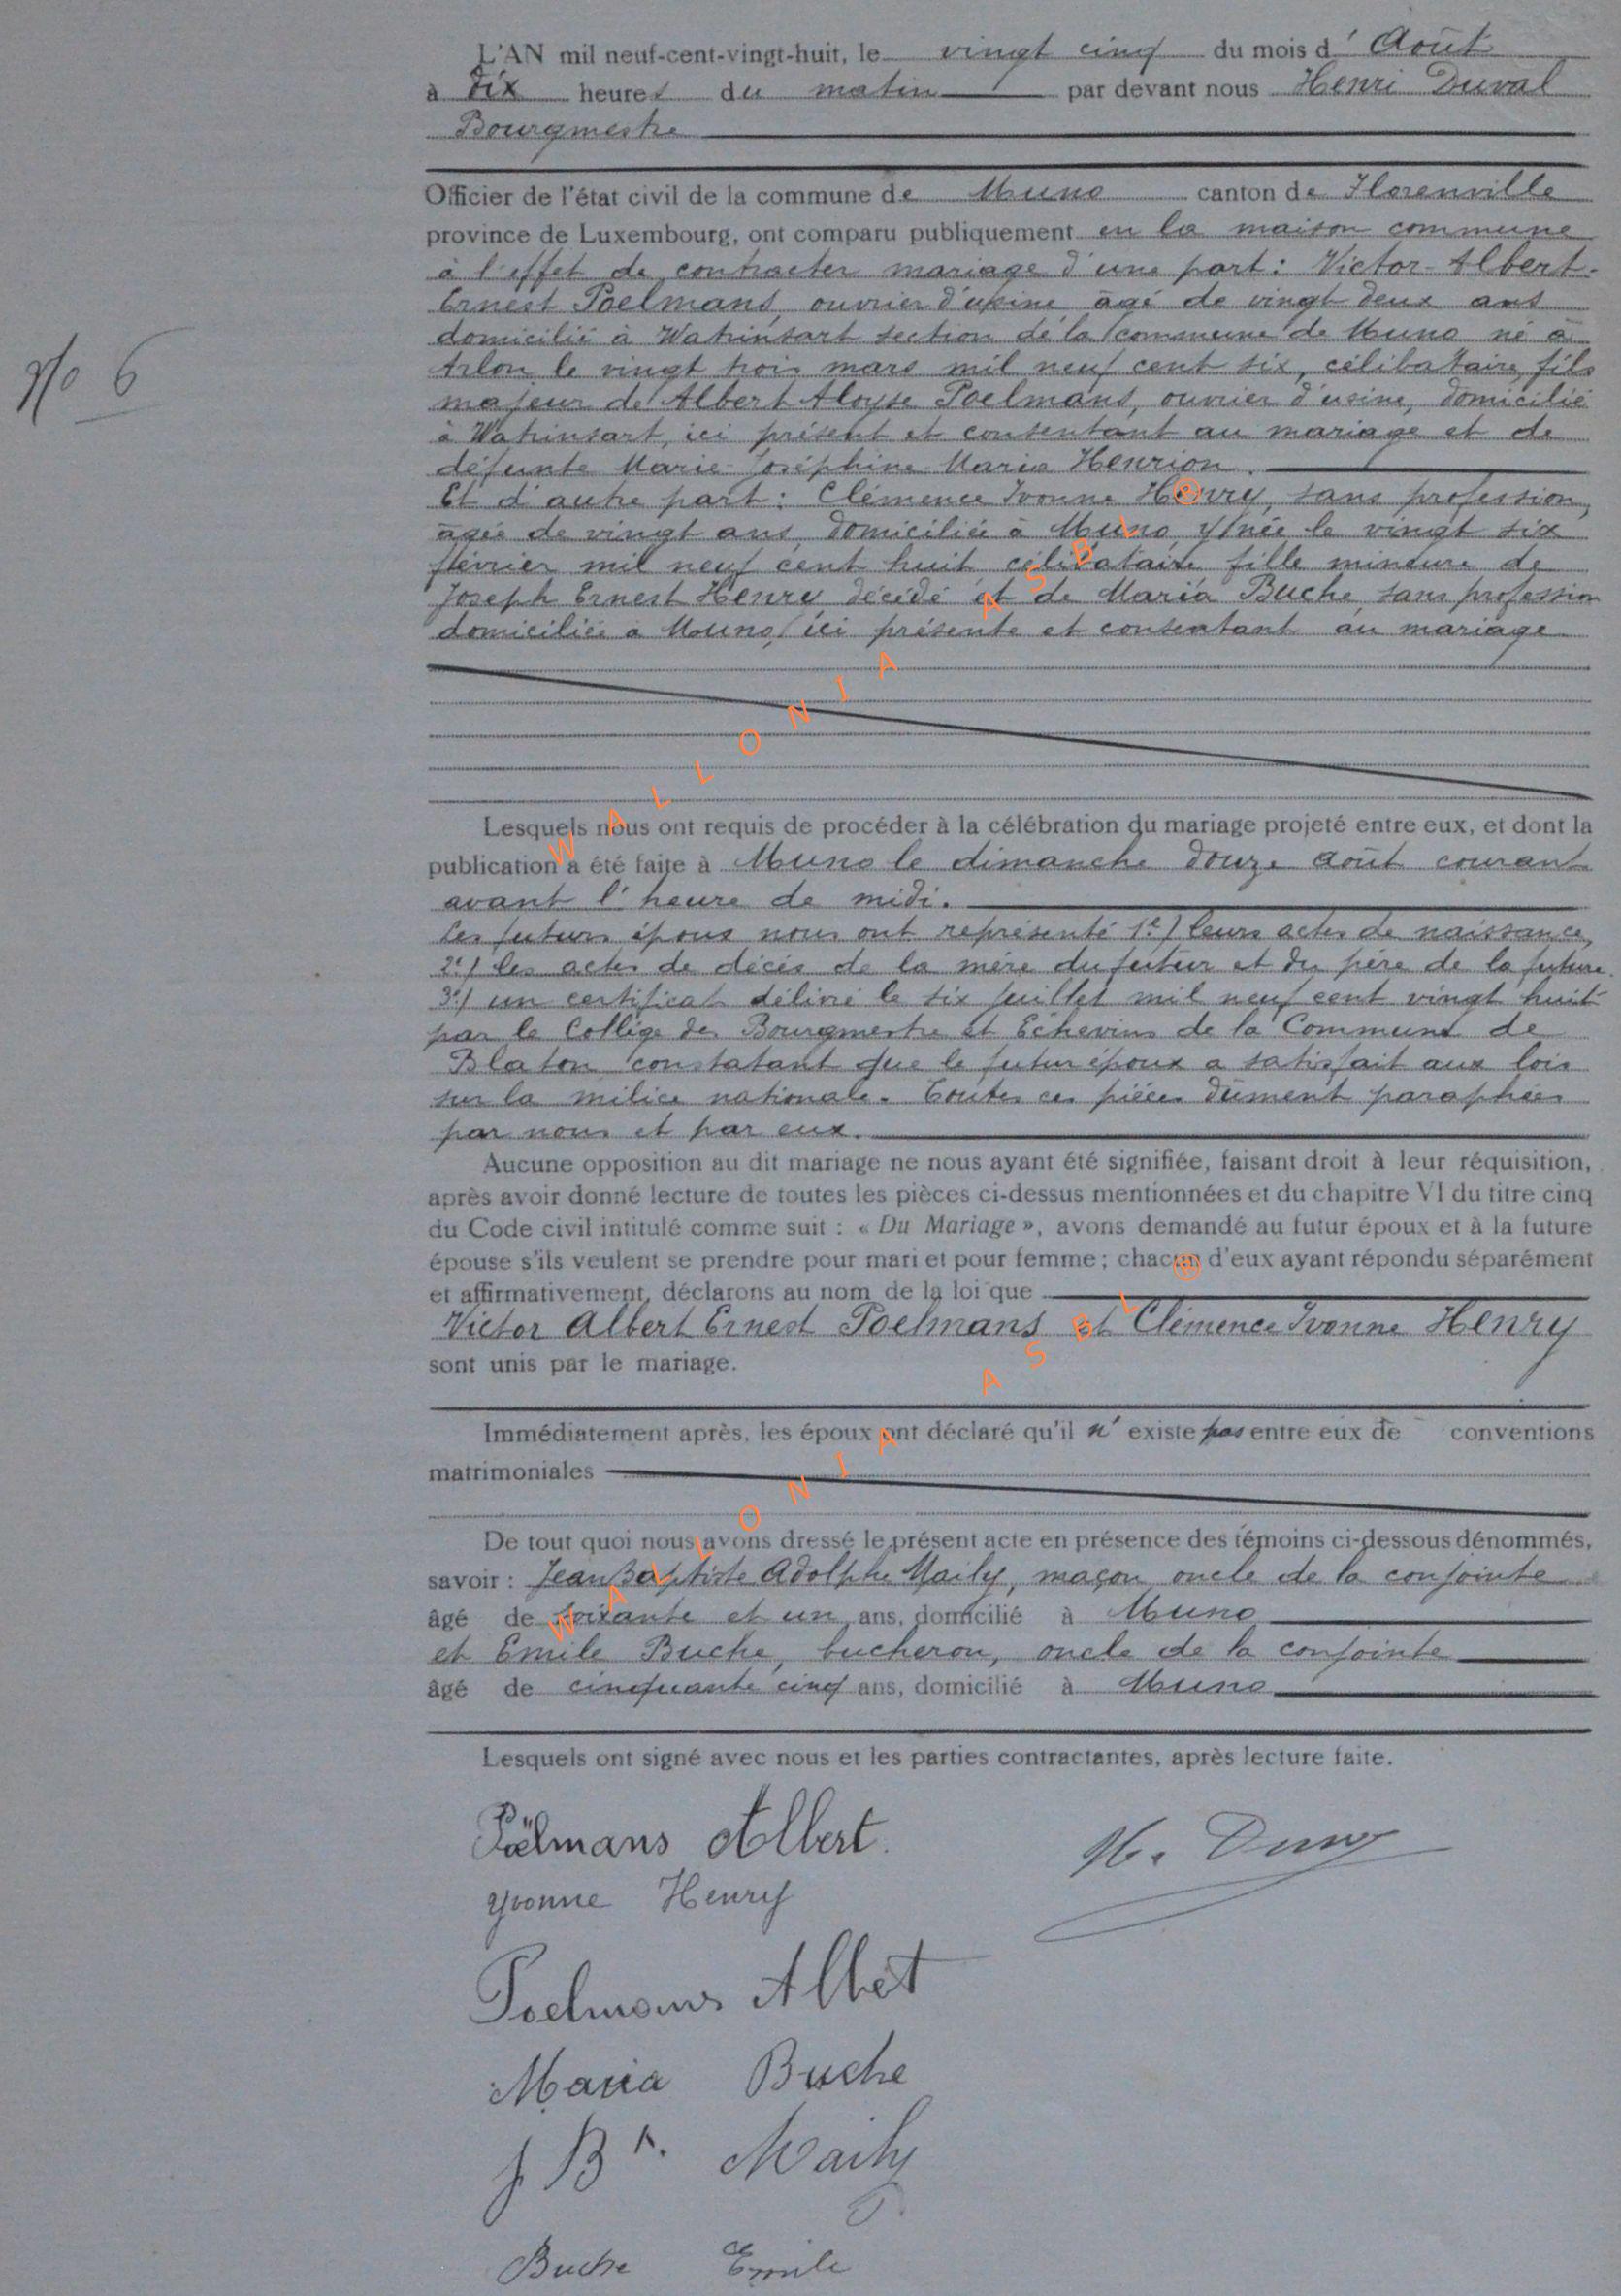 L'AN mil neuf-cent-vingt-huit, le vingt cinq du mois d'Août
à dix heures du matin par devant nous Henri Duval
Bourgmestre
Officier de l'état civil de la commune de Muno canton de Florenville
province de Luxembourg, ont comparu publiquement en la maison commune
à l'effet de contracter mariage d'une part: Victor-Albert-
Ernest Poelmans, ouvrier d'usine, âgé de vingt deux ans
domicilié à Watrinsart section de la commune de Muno né à
Arlon le vingt trois mars mil neuf cent six, célibataire, fils
majeur de Albert Aloyse Poelmans, ouvrier d'usine, domicilié
à Watrinsart, ici présent et consentant au mariage et de
défunte Marie-Joséphine Maria Henrion.
Et d'autre part: Clémence Ivonne Henry, sans profession,
âgée de vingt ans, domiciliée à Muno y née le vingt six
février mil neuf cent huit célibataire fille mineure de
Joseph Ernest Henry, décédé et de Maria Buche, sans profession
domiciliée à Muno, ici présente et consentant au mariage
No 6
Lesquels nous ont requis de procéder à la célébration du mariage projeté entre eux, et dont la
publication a été faite à Muno le dimanche douze août courant
avant l'heure de midi.
Les futurs époux nous ont représenté 1°) leurs actes de naissance,
2°) les actes de décès de la mère du futur et du père de la future.
3°) un certificat délivré le six juillet mil neuf cent vingt huit
par le Collège des Bourgmestre et Echevins de la Commune de
Blaton constatant que le futur époux a satisfait aux lois
sur la milice nationale. Toutes ces pièces dûment paraphées
par nous et par eux.
Aucune opposition au dit mariage ne nous ayant été signifiée, faisant droit à leur réquisition,
après avoir donné lecture de toutes les pièces ci-dessus mentionnées et du chapitre VI du titre cinq
du Code civil intitulé comme suit : « Du Mariage », avons demandé au futur époux et à la future
épouse s'ils veulent se prendre pour mari et pour femme ; chacun d'eux ayant répondu séparément
et affirmativement, déclarons au nom de la loi que
Victor Albert Ernest Poelmans et Clémence Ivonne Henry
sont unis par le mariage.
Immédiatement après, les époux ont déclaré qu'il n'existe pas entre eux de conventions
matrimoniales
De tout quoi nous avons dressé le présent acte en présence des témoins ci-dessous dénommés,
savoir : Jean Baptiste Adolphe Maily, maçon, oncle de la conjointe
âgé de soixante et un ans, domicilié à Muno
et Emile Buche, bucheron, oncle de la conjointe
âgé de cinquante cinq ans, domicilié à Muno
Lesquels ont signé avec nous et les parties contractantes, après lecture faite.
Pœlmans Albert.
H. Duval
Yvonne Henry
Poelmans Albert
Maria Buche
J Bte. Maily
Buche Emile
WALLONIA ASBL ®
WALLONIA ASBL ®